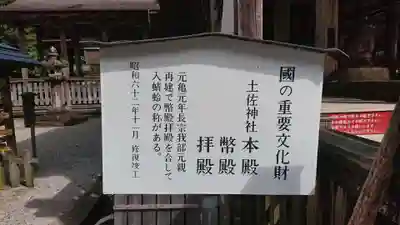 國の重要文化財
土佐神社 本殿
幣殿
拝殿
元亀元年長宗我部元親
再建で幣殿拝殿を合して
入蜻蛉の称がある。
昭和六十二年十一月 修復竣工